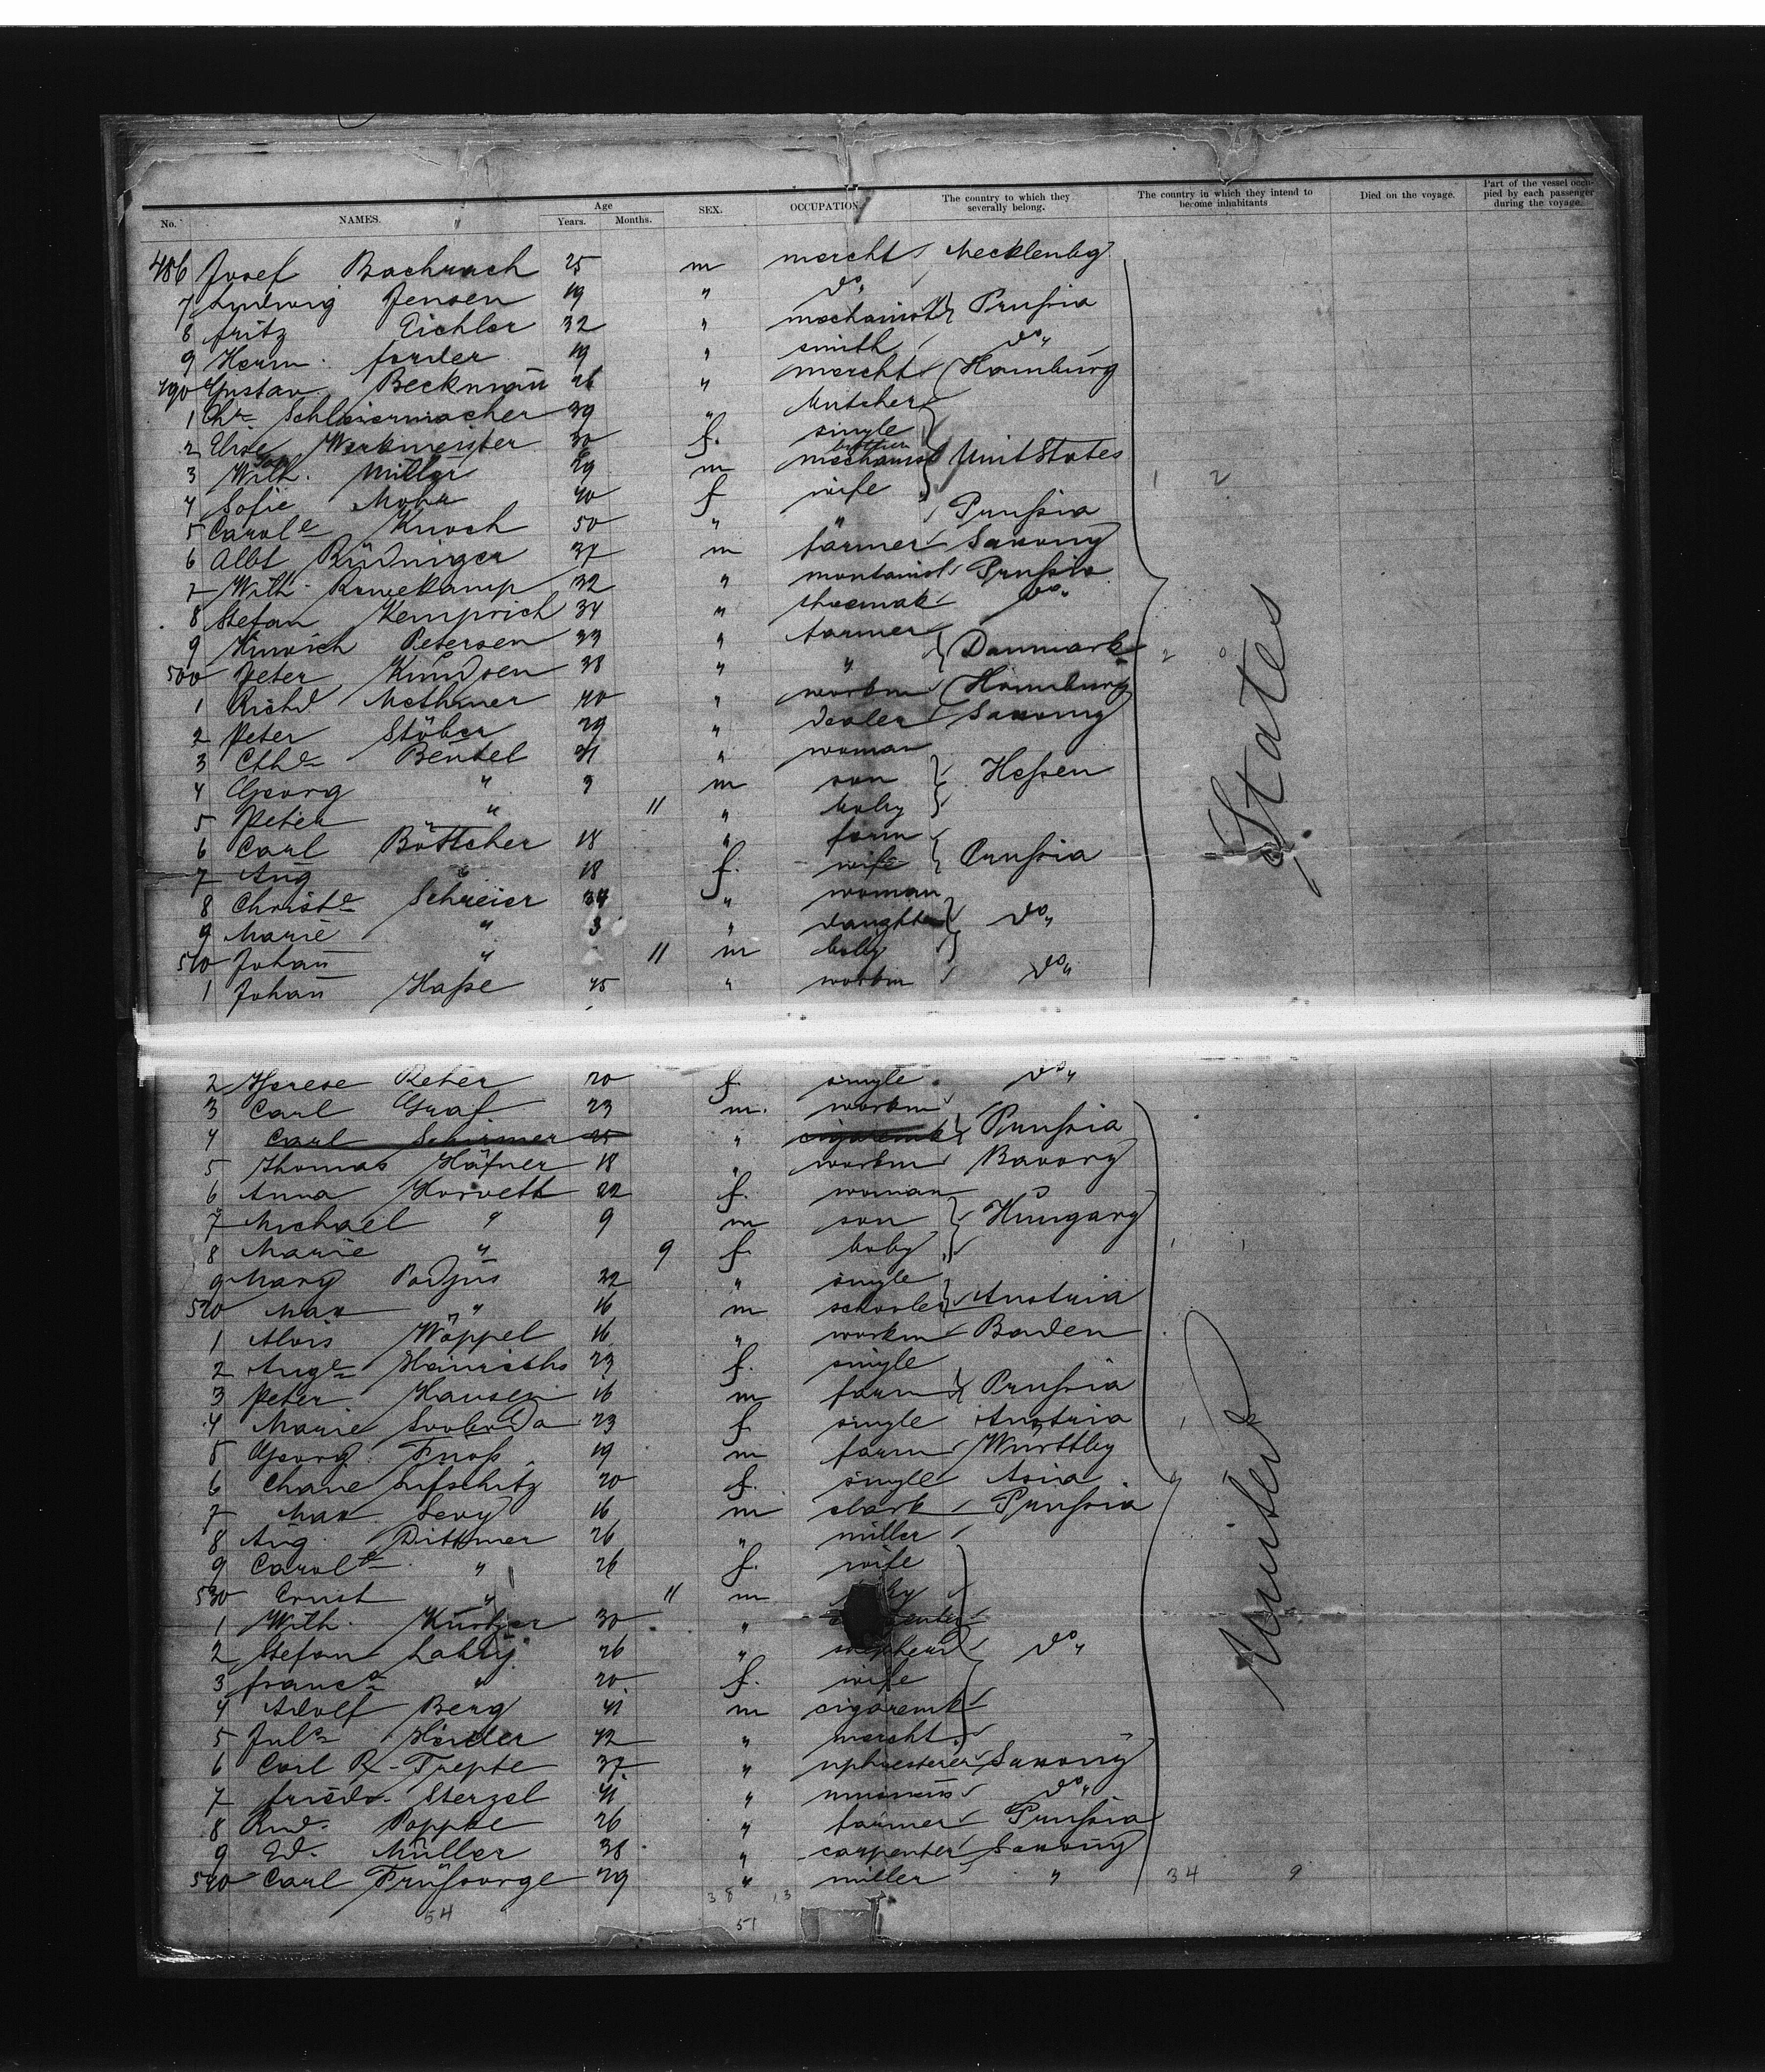 No. NAMES. Age Years. Months. SEX. OCCUPATION. The country to which they severally belong. The country in which they intend to become inhabitants Died on the voyage. Part of the vessel occupied by each passenger during the voyage.
486 Josef Bachrach 25 m mercht Mecklenbg
7 Ludwig Jensen 19 " do
8 Fritz Eichler 32 " mechanist Prussia
9 Herm. 19 " smith do"
490 Gustav Beckman 26 " mercht Hamburg
1 Chr. Schleiermacher 39 " butcher
2 Elise Werkmeister 30 f. single
3 Wilh. Müller 29 m mechanist Unit States 1 2
4 Sofie Mohr 40 f wife
5 Carole Knoch 50 " " Prussia
6 Albt Rüdniger 37 m farmer Saxony
7 Wilh. 32 " Prussia
8 Stefan Kemprich 34 " shoemak do"
9 Hinrich Petersen 33 " farmer
500 Peter Knudsen 38 " " Danmark 2 0
1 Richd Methner 40 " workm Hamburg
2 Peter Stöber 29 " dealer Saxony
3 Cthe Bentel 31 " woman
4 Georg " 3 m son Hessen
5 Peter " 11 " baby
6 Carl Böttcher 18 " farm
7 Aug " 18 f. wife Prussia
8 Christe Schreier 34 " woman
9 Marie " 3 " daughter do"
510 Johan " 11 m baby
1 Johan Hasse 45 " workm do"
States
2 Therese Reter 20 f. single do"
3 Carl Graf 23 m. workm
4 Carl Schirmer 25 " cigaremk Prussia
5 Thomas Häfner 18 " workm Bavary
6 Anna Horveth 22 f. woman
7 Michael " 9 m son Hungary
8 Marie " 9 f. baby 1 1
9 Mary Podjus 22 " single
520 Max " 16 m schooler Austria
1 Alois Wöppel 16 " workm Baden
2 Auge Heinrichs 23 f. single
3 Peter Hansen 16 m farm Prussia
4 Marie Svoboda 23 f single Austria 1
5 Georg 19 m farm Württbg
6 Chane Lifschitz 20 f. single Asia
7 Max Levy 16 m clerk Prussia
8 Aug. Dittmer 26 " miller
9 Carole " 26 f. wife
530 Ernst " 11 m
1 Wilh. 30 "
2 Stefan 26 " shepherd do"
3 " 20 f. wife
4 Adolf Berg 41 m cigaremk
5 Juls Heider 42 " mercht
6 Carl R. Trepte 37 " uphoesterer Saxony
7 Friedr. Sterzel 41 " do"
8 Rud. Poppke 26 " farmer Prussia
9 Ed. Müller 38 " carpenter Saxony
540 Carl Frühsorge 29 " miller " 34 9
United
38 13
54 51